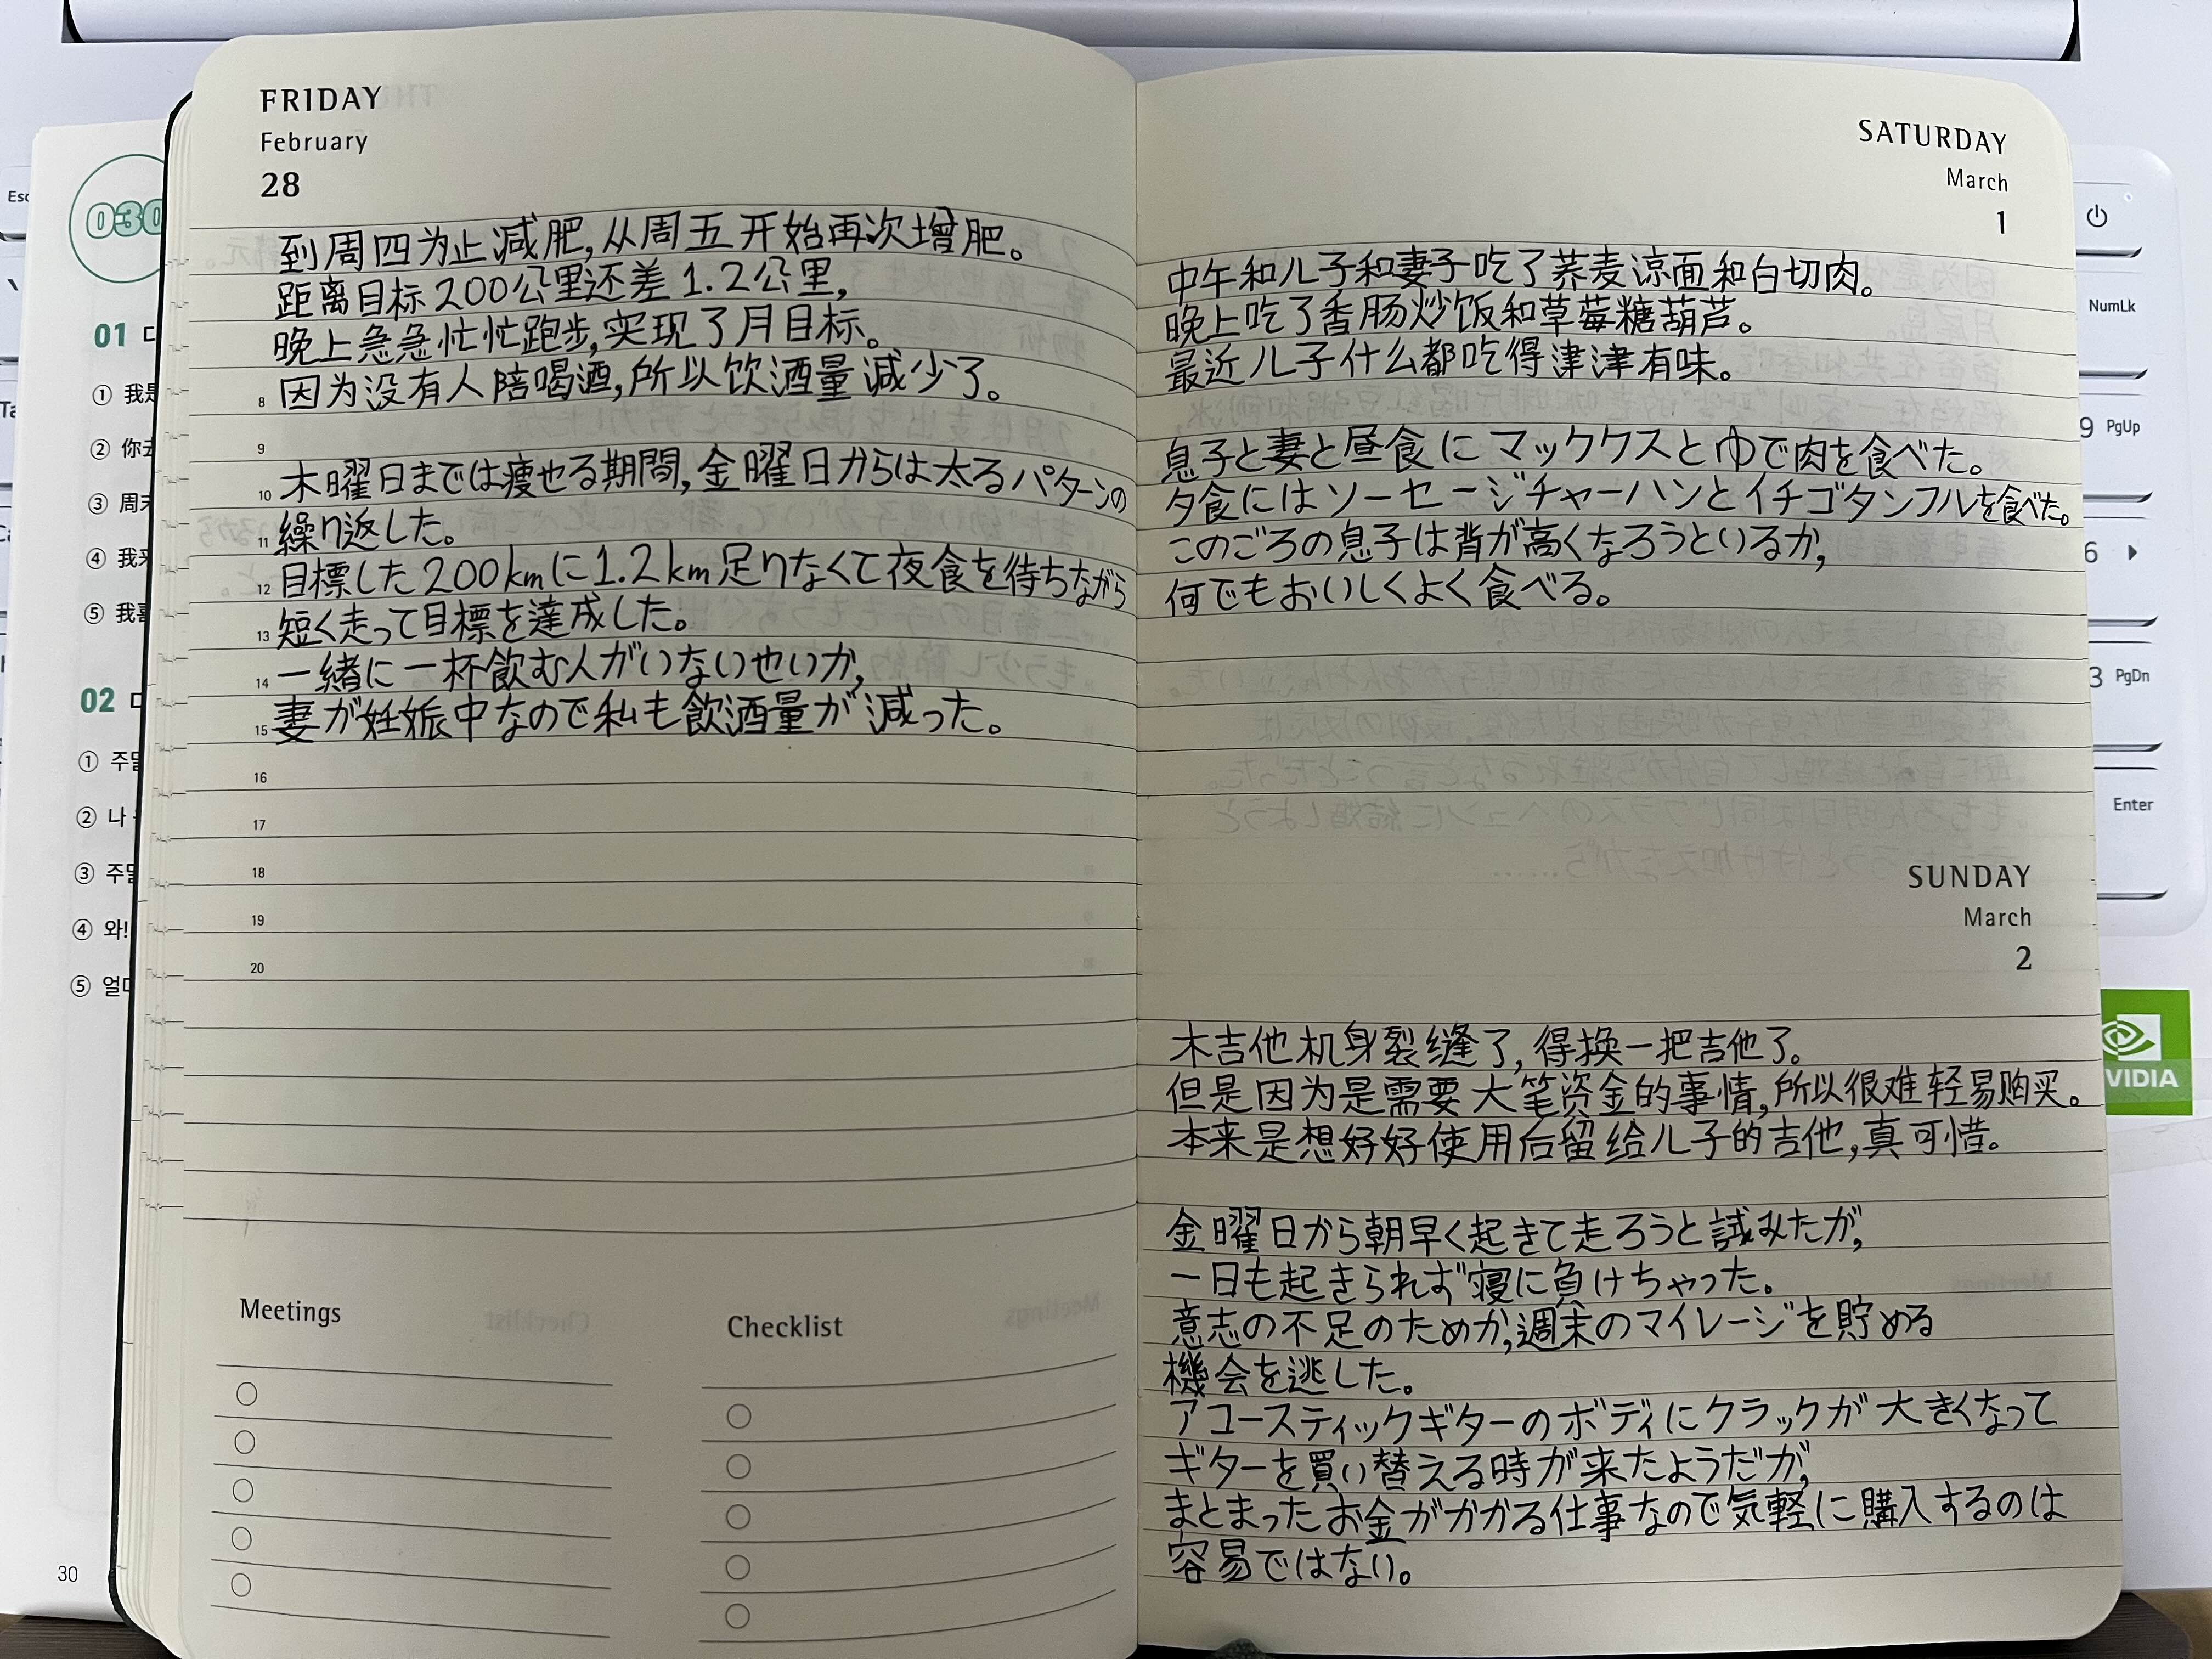 FRIDAY
February
28
到周四为止减肥,从周五开始再次增肥。
距离目标200公里还差1.2公里,
晚上急急忙忙跑步,实现了月目标。
8 因为没有人陪喝酒,所以饮酒量减少了。
9
10 木曜日までは痩せる期間,金曜日からは太るパターンの
11 繰り返した。
12 目標した200kmに1.2km足りなくて夜食を待ちながら
13 短く走って目標を達成した。
14 一緒に一杯飲む人がいないせいか,
15 妻が妊娠中なので私も飲酒量が減った。
16
17
18
19
20
Meetings
Checklist
SATURDAY
March
1
中午和儿子和妻子吃了荞麦凉面和白切肉。
晚上吃了香肠炒饭和草莓糖葫芦。
最近儿子什么都吃得津津有味。
息子と妻と昼食にマックククスとゆで肉を食べた。
夕食にはソーセージチャーハンとイチゴタンフルを食べた。
このごろの息子は背が高くなろうといるか,
何でもおいしくよく食べる。
SUNDAY
March
2
木吉他机身裂缝了,得换一把吉他了。
但是因为是需要大笔资金的事情,所以很难轻易购买。
本来是想好好使用后留给儿子的吉他,真可惜。
金曜日から朝早く起きて走ろうと試みたが,
一日も起きられず寝に負けちゃった。
意志の不足のためか,週末のマイレージを貯める
機会を逃した。
アコースティックギターのボディにクラックが大きくなって
ギターを買い替える時が来たようだが,
まとまったお金がかかる仕事なので気軽に購入するのは
容易ではない。
030
01
① 我是
② 你去
③ 周末
④ 我
⑤ 我喜
02
① 주말
② 나
③ 주말
④ 와!
⑤ 얼마
30
Esc
NumLk
9 PgUp
6
3 PgDn
Enter
VIDIA